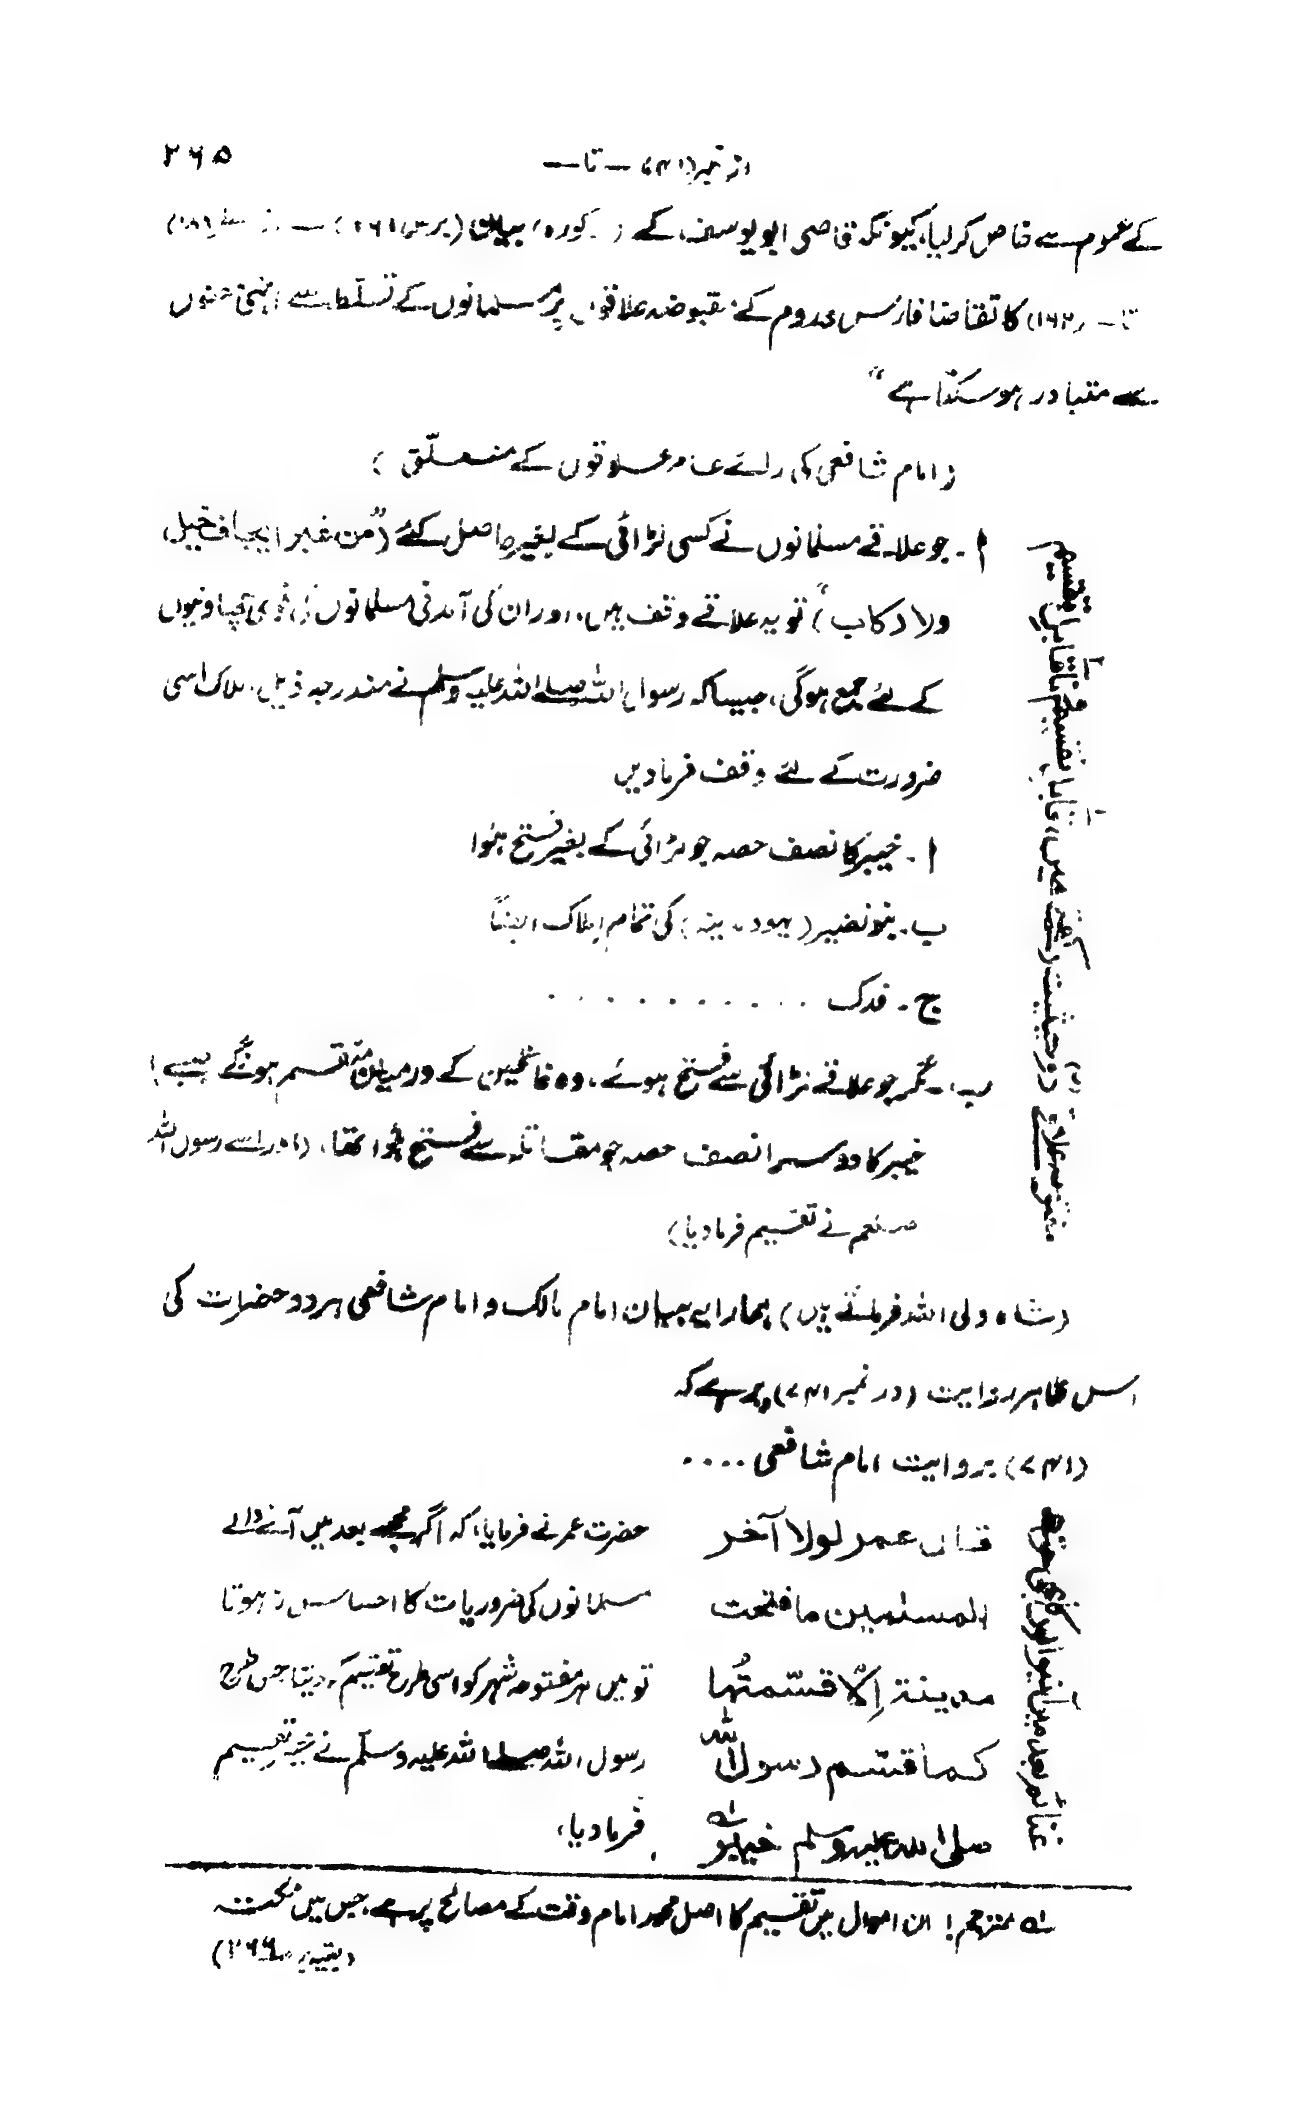 ۲۶۵
از نمبر (۷۴۱) — تا —
کے عموم سے خاص کر لیا، کیونکہ قاضی ابو یوسف کے مذکورہ بیان (برص ۲۶۱) —
تا — (۱۶۲) کا تقاضا فارس و روم کے مقبوضہ علاقوں پر مسلمانوں کے تسلط سے انہی معنوں
سے متبادر ہو سکتا ہے"
(امام شافعی کی رائے عام علاقوں کے متعلق)
ا ۔ جو علاقے مسلمانوں نے کسی لڑائی کے بغیر حاصل کئے ("من غیر ایجاف خیل
ولا رکاب") تو یہ علاقے وقف ہیں، اور ان کی آمدنی مسلمانوں کی فوجی چھاونیوں
کے لئے جمع ہوگی، جیسا کہ رسول اللہ صلے اللہ علیہ وسلم نے مندرجہ ذیل املاک اسی
ضرورت کے لئے وقف فرما دیں
ا ۔ خیبر کا نصف حصہ جو لڑائی کے بغیر فتح ہوا
ب ۔ بنو نضیر (یہود مدینہ) کی تمام املاک ایضاً
ج ۔ فدک . . . . . . . . . .
ب ۔ مگر جو علاقے لڑائی سے فتح ہوئے، وہ غانمین کے درمیان تقسیم ہونگے جیسے
خیبر کا دوسرا نصف حصہ جو مقاتلہ سے فتح ہوا تھا، (اور اسے رسول اللہ
صلعم نے تقسیم فرما دیا)
مفتوحہ علاقے دو حیثیت رکھتے ہیں، قابل تقسیم و ناقابل تقسیم
(شاہ ولی اللہ فرماتے ہیں) ہمارا یہ بیان امام مالک و امام شافعی ہر دو حضرات کی
اس ظاہر روایت (در نمبر ۷۴۱) پر ہے کہ
(۷۴۱) بروایت امام شافعی ....
قال عمر لولا آخر
المسلمین ما فتحت
مدینۃ اِلّا قسّمتُہا
کما قسّم رسول اللہ
صلی اللہ علیہ وسلم خیبر لہ
حضرت عمر نے فرمایا، کہ اگر مجھے بعد میں آنے والے
مسلمانوں کی ضروریات کا احساس نہ ہوتا
تو میں ہر مفتوحہ شہر کو اسی طرح تقسیم کر دیتا جس طرح
رسول اللہ صلے اللہ علیہ وسلم نے خیبر تقسیم
فرما دیا،
غنائم بعد میں آنیوالوں کا بھی حق ہے
لہ مترجم! ان اموال میں تقسیم کا اصل محور امام وقت کے مصالح پر ہے، جس میں
(بقیہ بر صـ ۲۶۶)